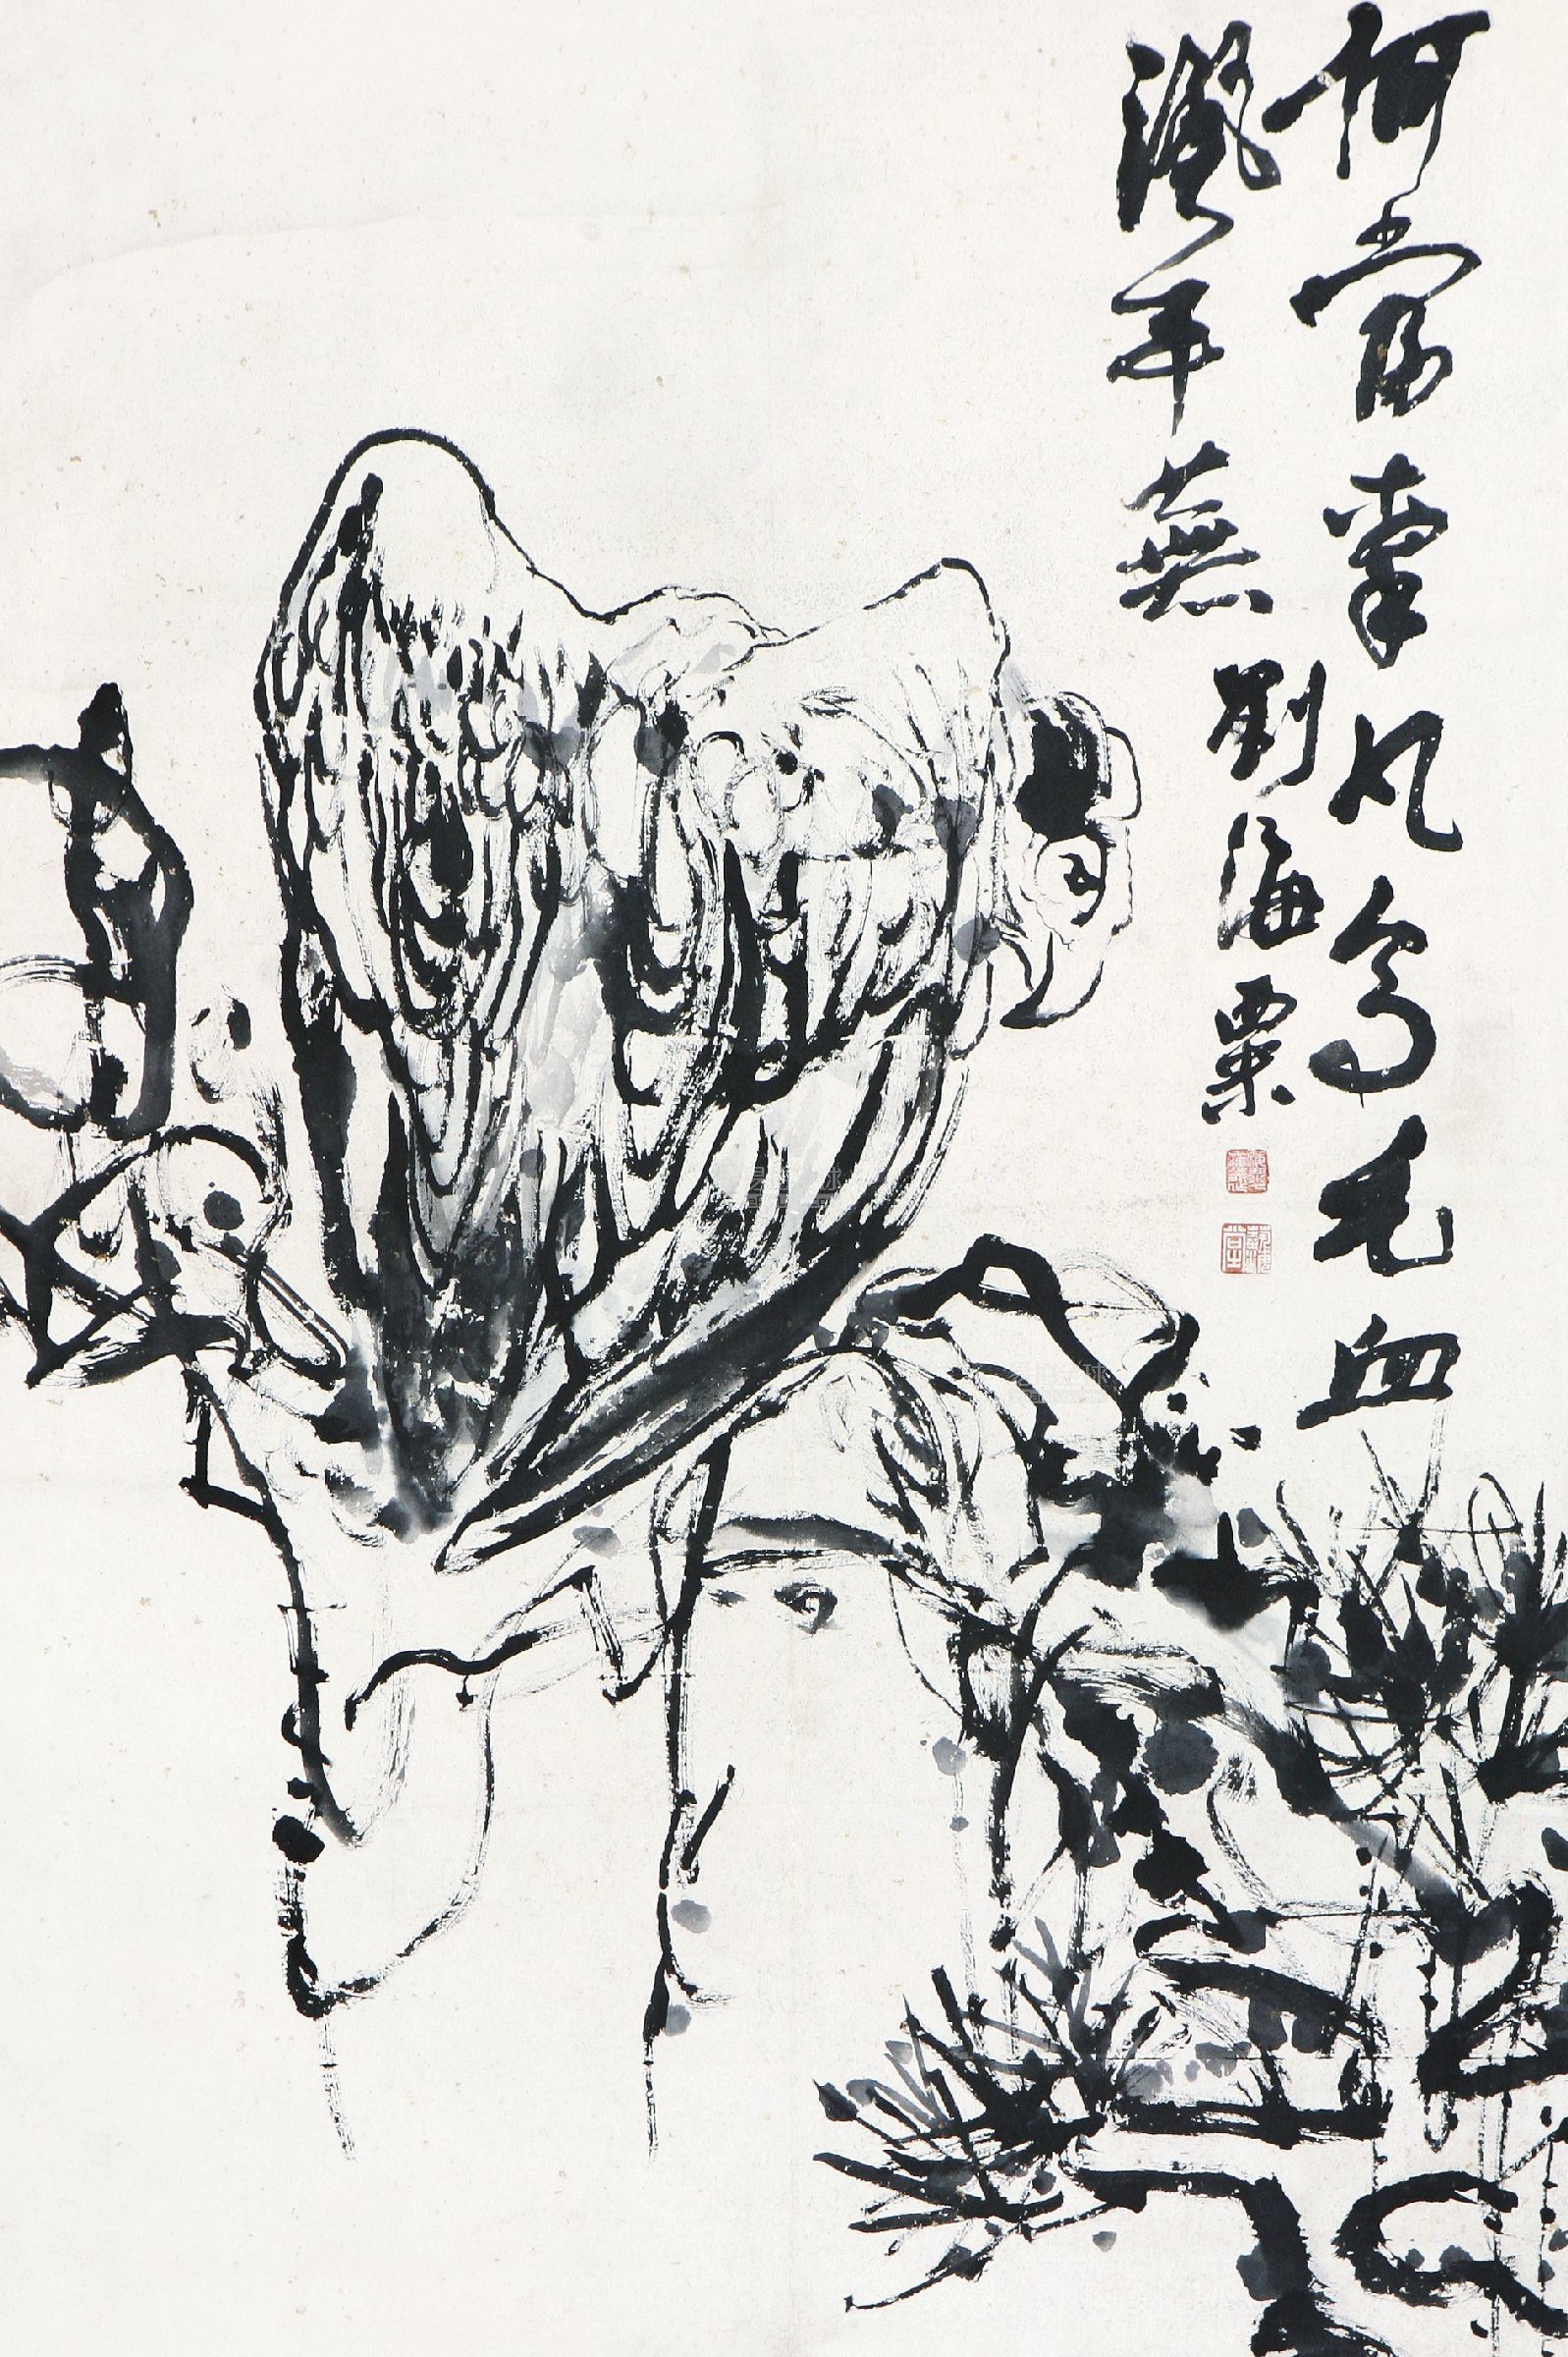 何當擊凡鳥毛血
灑平蕪 劉海粟